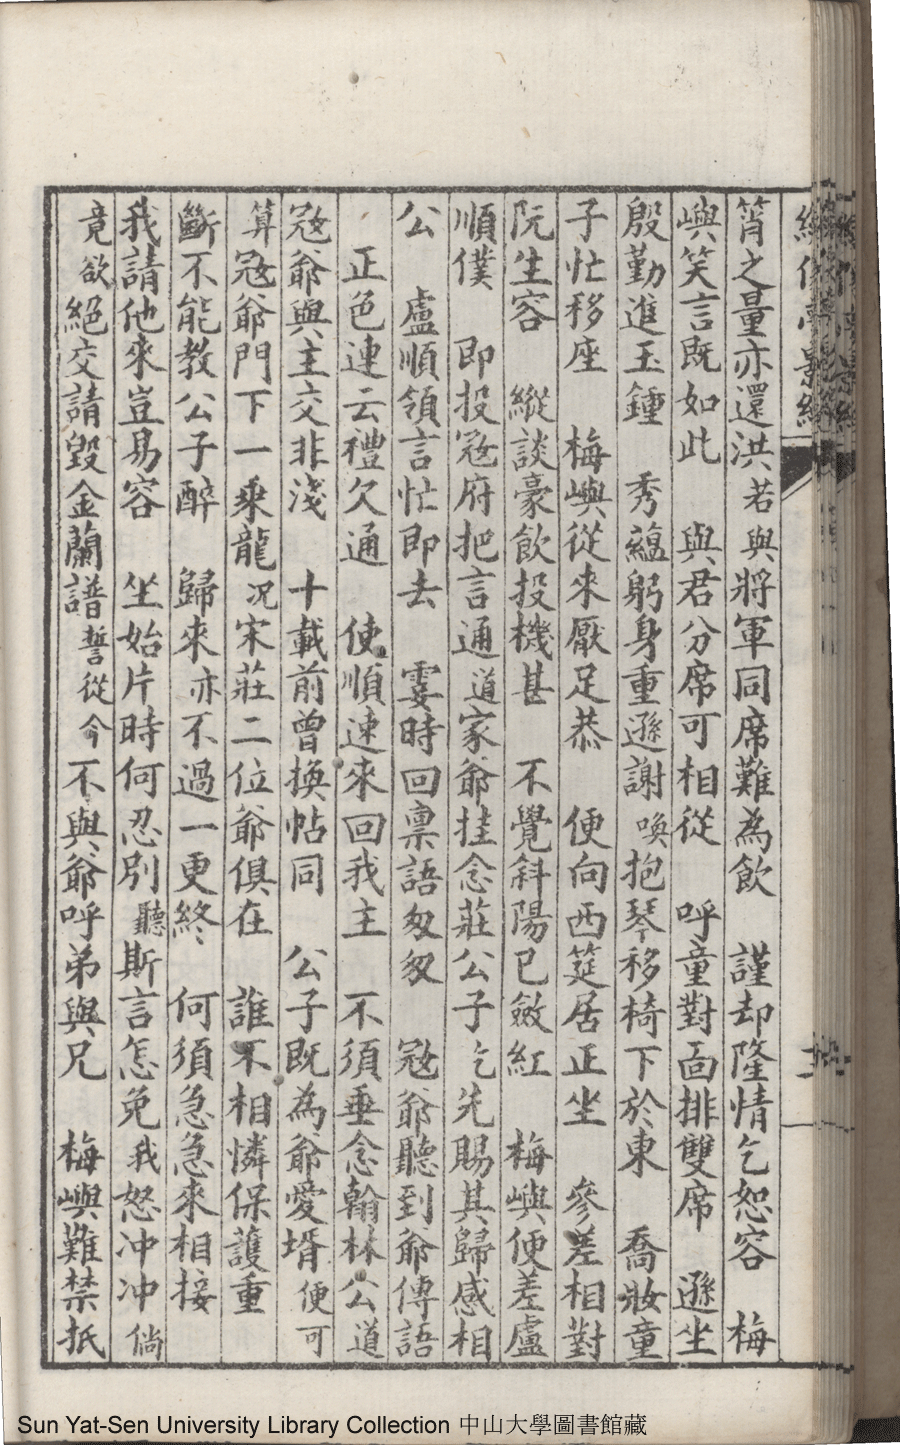 筲之量亦還洪若與將軍同席難為飲　謹却隆情乞恕容　梅
嶼笑言既如此　與君分席可相從　呼童對面排雙席　遜坐
殷勤進玉鍾　秀蘊躬身重遜謝喚抱琴移椅下於東　喬妝童
子忙移座　梅嶼從來厭足恭　便向西筵居正坐　參差相對
阮生容　縱談豪飲投機甚　不覺斜陽已斂紅　梅嶼便差盧
順僕　即投冦府把言通道家爺挂念莊公子乞先賜其歸感相
公　盧順領言忙即去　霎時回稟語匆匆　冦爺聽到爺傳語
正色連云禮欠通　使順速來回我主　不須垂念翰林公道
冦爺與主交非淺　十載前曾換帖同　公子既為爺愛壻便可
算冦爺門下一乘龍况宋莊二位爺俱在　誰不相憐保護重
斷不能教公子醉　歸來亦不過一更終　何須急急來相接
我請他來豈易容　坐始片時何忍別聽斯言怎免我怒冲冲倘
竟欲絕交請毀金蘭譜誓從今不與爺呼弟與兄　梅嶼難禁抵
Sun Yat-Sen University Library Collection 中山大學圖書館藏